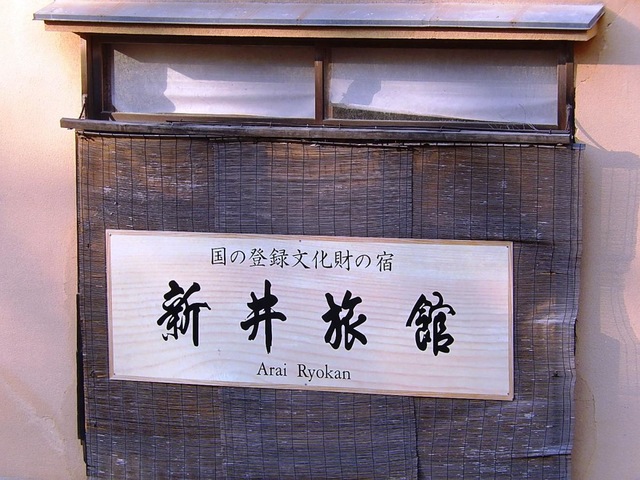 国の登録文化財の宿
新井旅館
Arai Ryokan